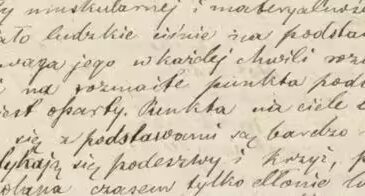 muskularnej i materyalnoś
ało ludzkie ciśnie na podstaw
waga jego w każdej chwili roz
i na rozmaite punkta pod
jest oparty. Punkta na ciele
się z podstawami są bardzo
tykają się podeszwy i krzyż, p
czasem tylko dłonie lu